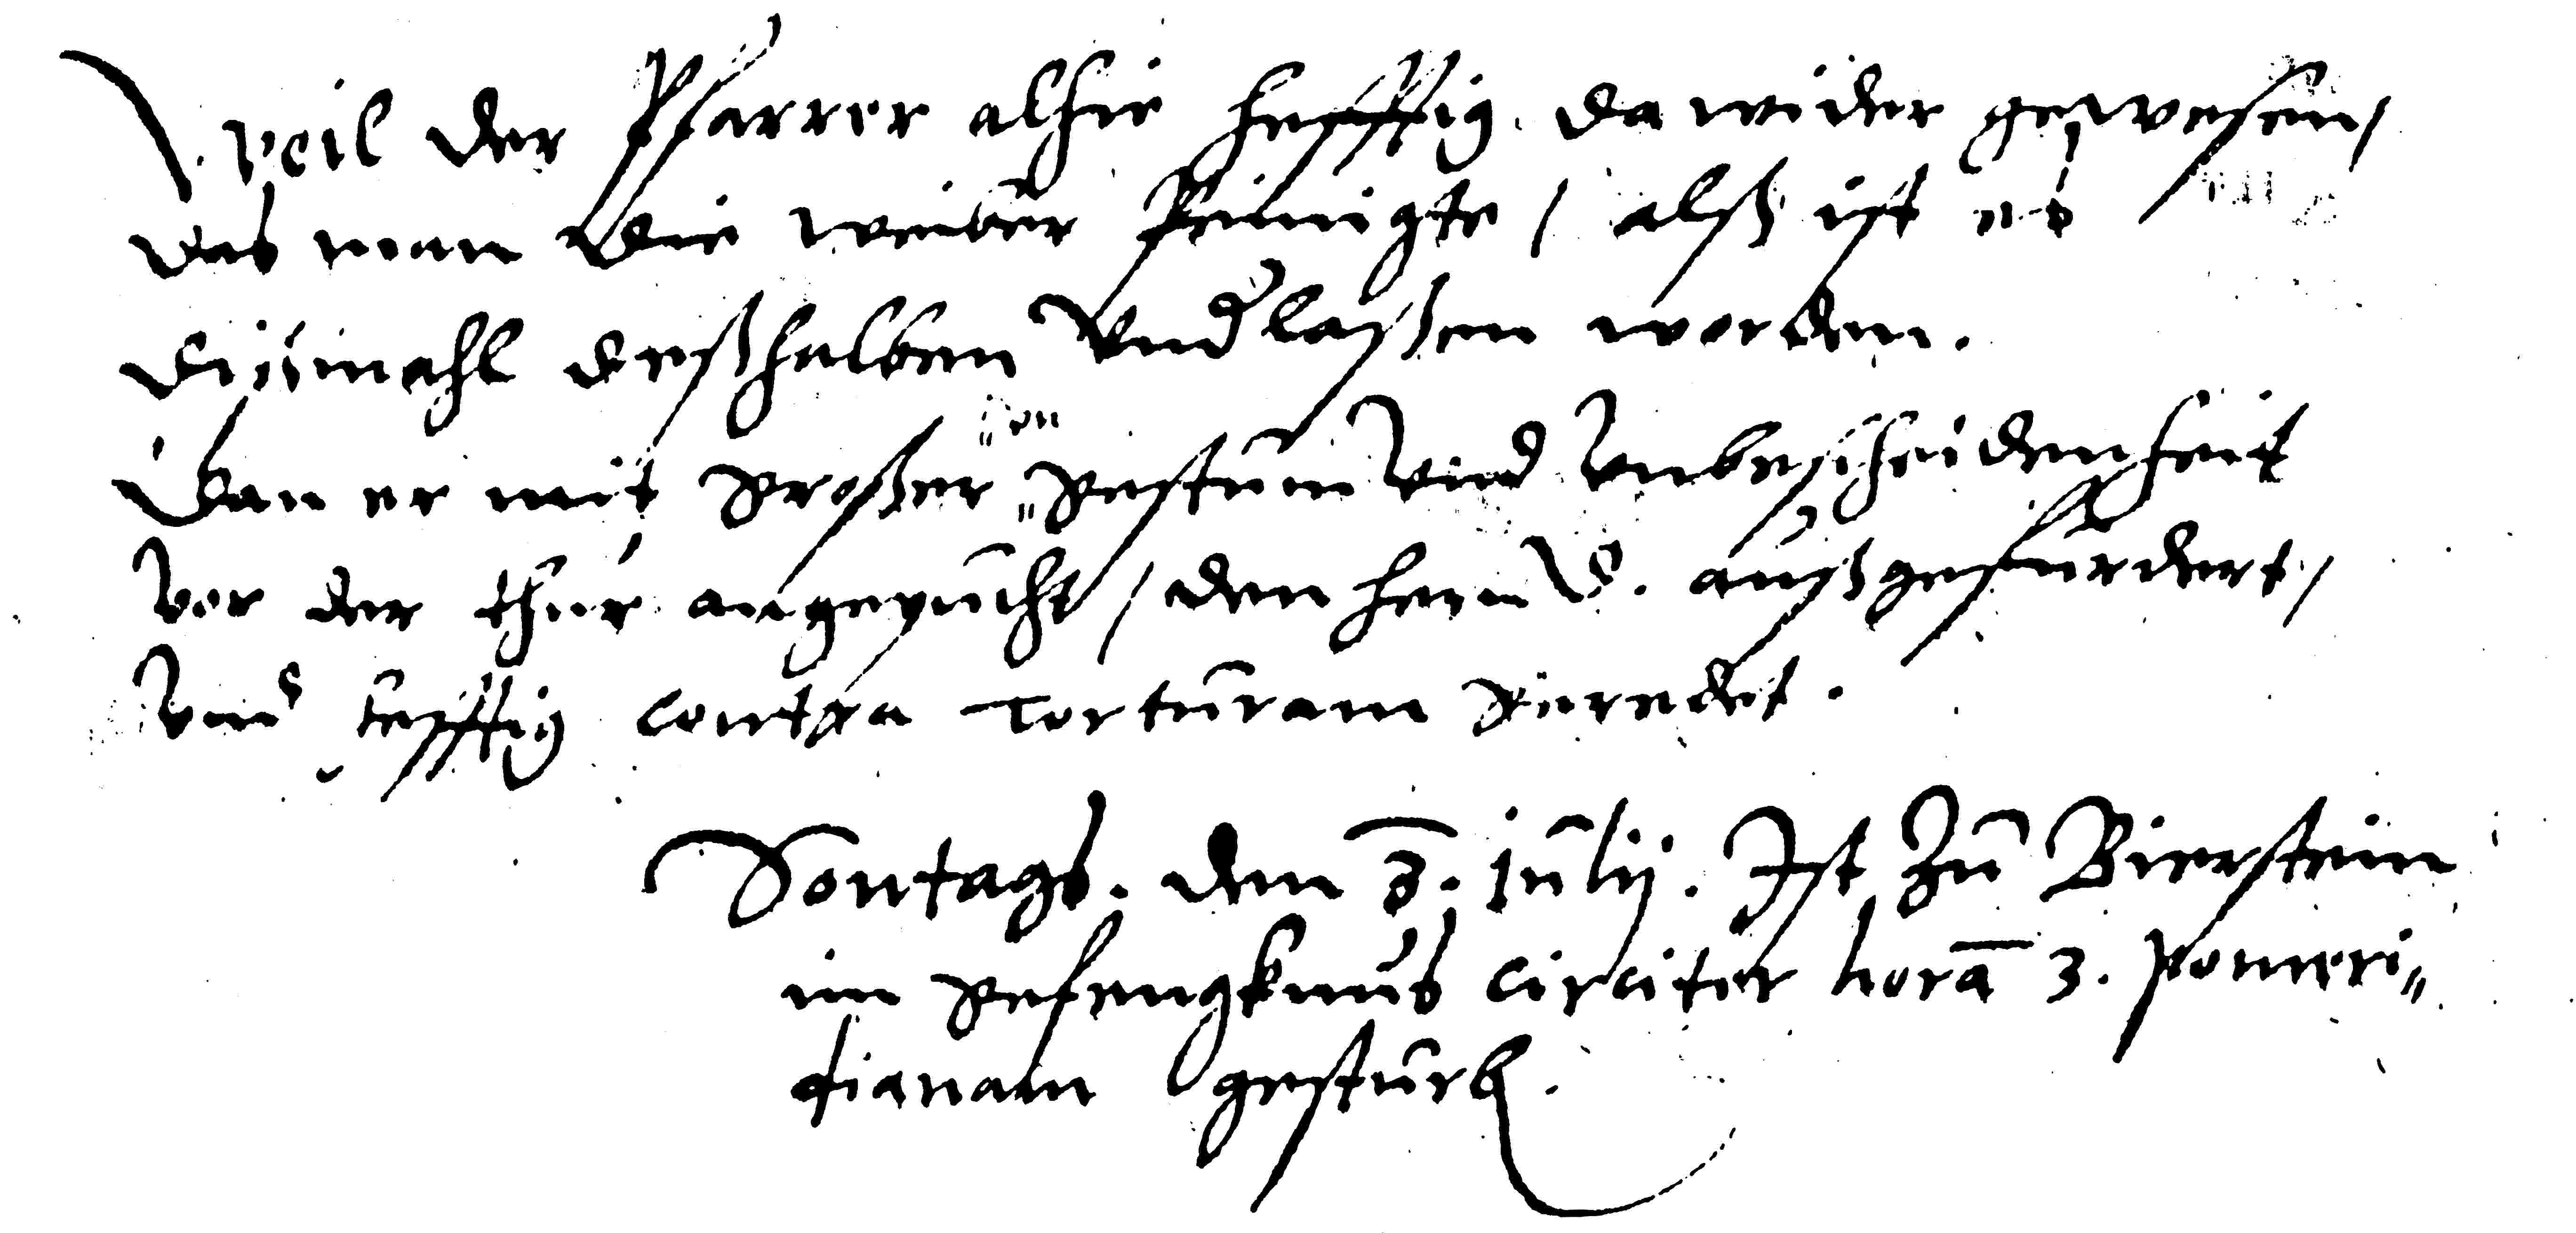 Weil der Pfarrer alhie hefftig dawider gewesen/
das man die weiber peinigte / alß ist es
dißmahl deßhalben vnd'laßen worden.
dan er mit großer "vn" gestüm vnd vnbescheidenheit
vor der thür angepucht / den herrn D. außgefürdert /
vnd hefftig contra torturam geredet.
Sontags. den 3. Julij. Ist zu Bierstein
im gefengknus circiter horā 3. pomeri"
dianam gestürb.